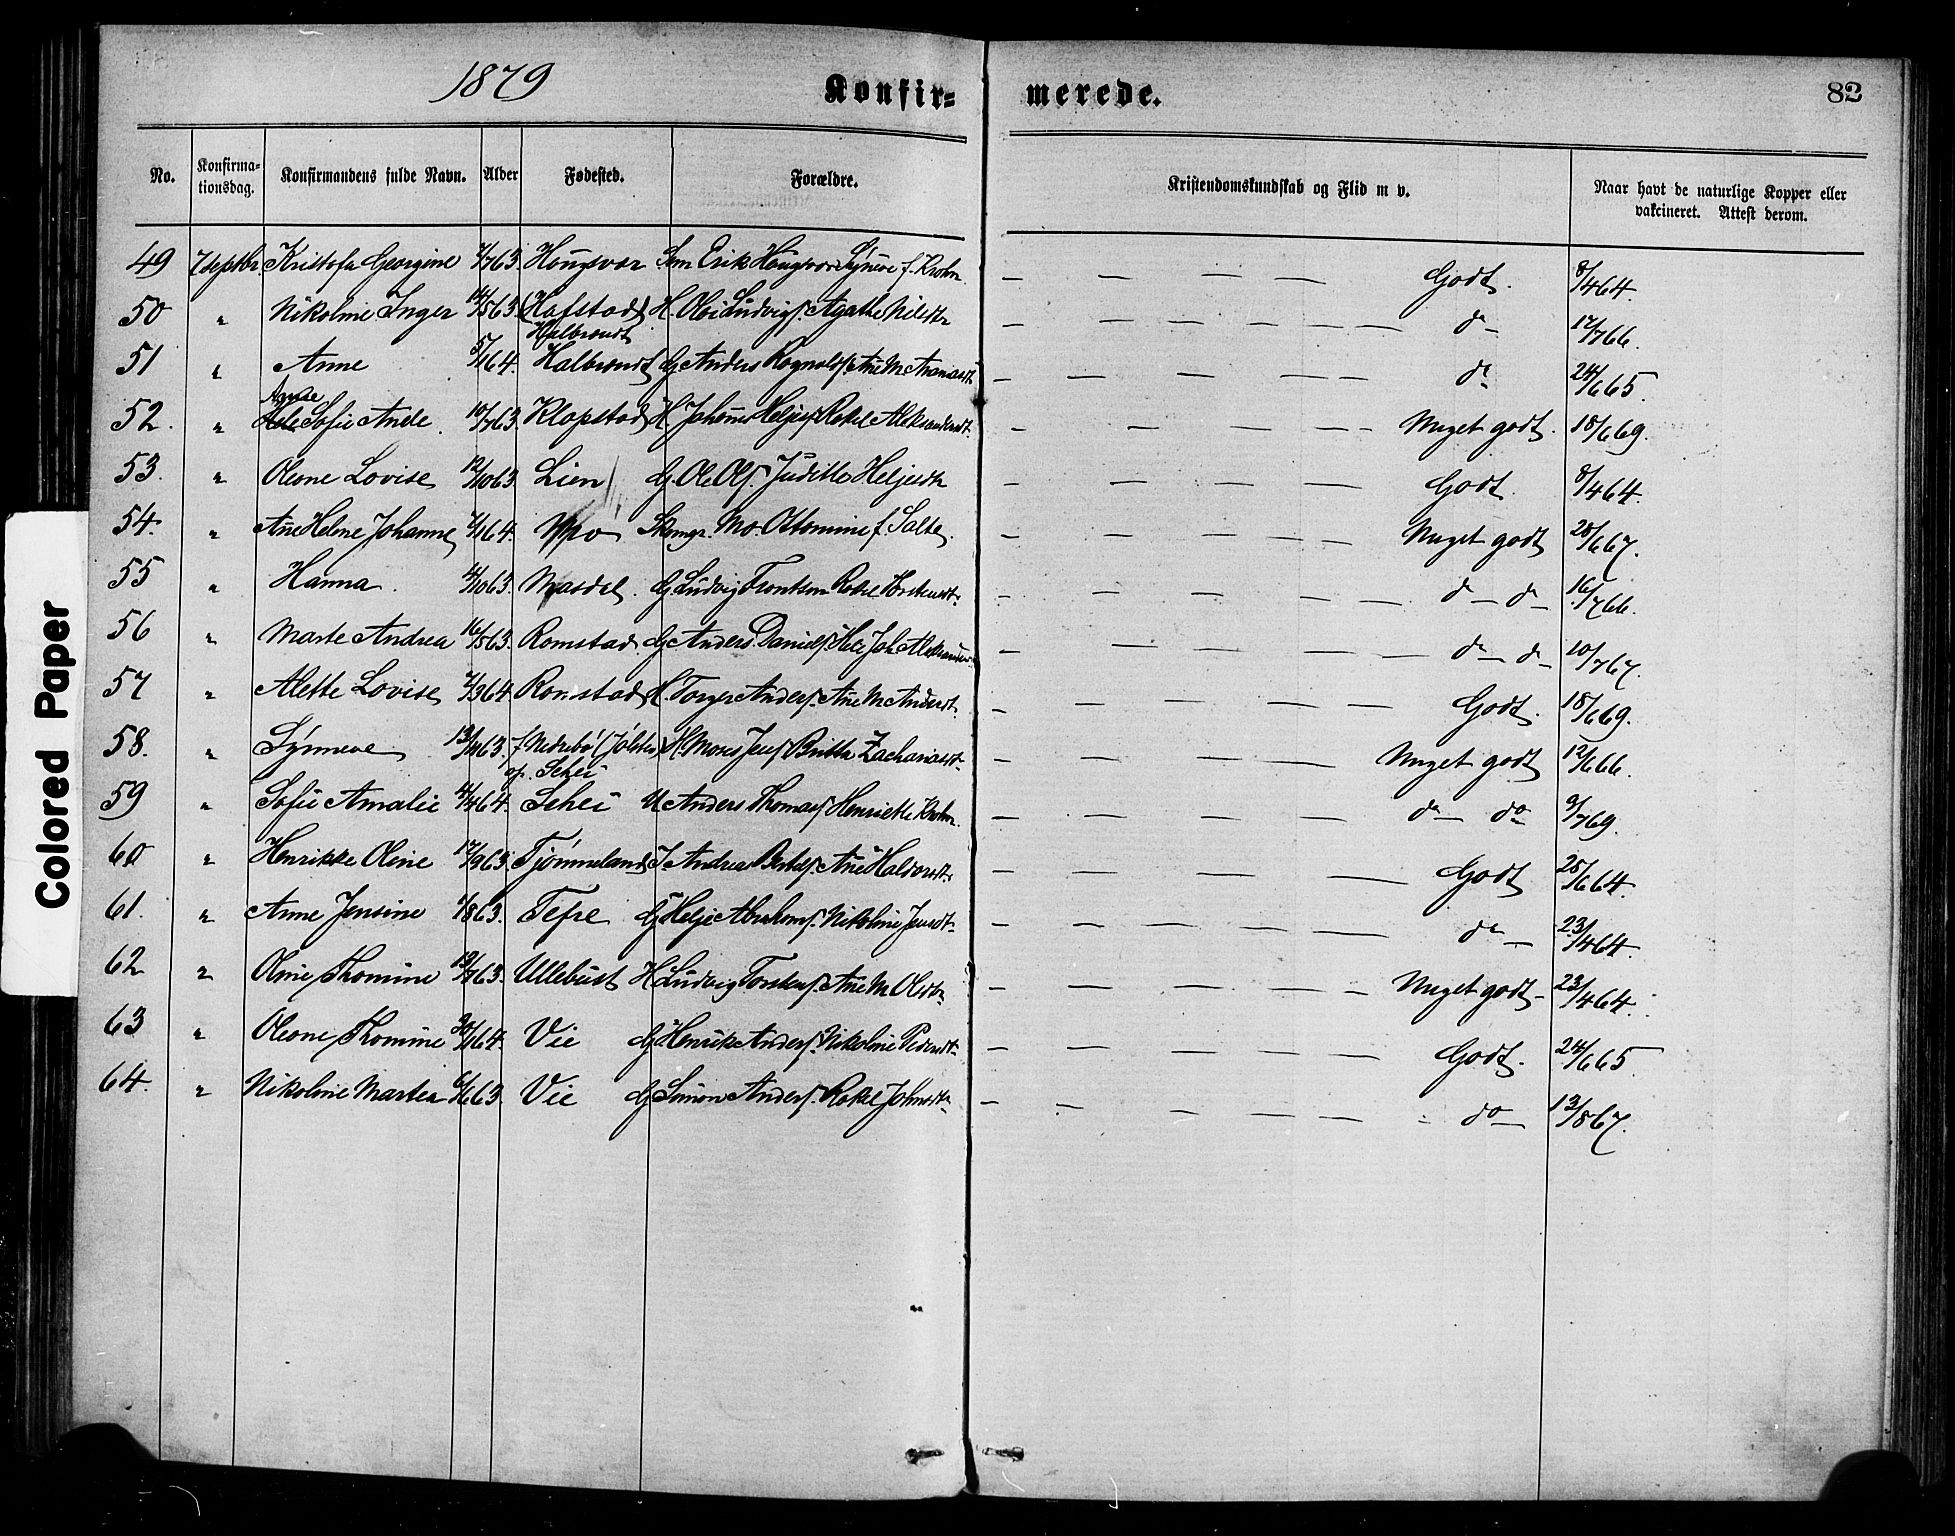 1879
Konfir=
merede.
82
No. Konfirma=tionsdag. Konfirmandens fulde Navn. Alder Fødested. Forældre. Kristendomskundskab og Flid m v. Naar havt de naturlige Kopper eller vakcineret. Attest derom.
49 7 septbr Kristofa Georgine 2/763. Hougsvær Erik Hougsvær Synneve f. Krohn — — — — Godt. 8/464.
50 " Nikoline Inger 14/563. (Hafstad) H. Ole Ludvigs. Agathe Nilsdtr — — — — — — do — 17/766.
Halbrendt
51 " Anne 5/164. Halbrendt G Anders Rognalds. Ane M Ananiasdtr — — — — — do 24/665.
52. " Sofie Andle 10/763. Klopstad H. Johannes Heljes. Rakel Aleksandersdt. — — — — — Meget godt. 18/669.
53. " Oleone Lovise 12/1063. Lien G. Ole Ols. Juditte Heljesdtr — — — — — Godt. 8/464.
54. " Ane Helene Johanne 2/164. Mo Ottomine f. Salte. — — — — — Meget godt 28/667.
55 " Hanna 4/1063. Masdal. G Ludvig Rakel Torstensdt. — — — — — do — do — 16/766.
56 " Marte Andrea 16/563. Romstad. G Anders Daniels. — — — — — do — do — 10/767.
57 " Alette Lovise 7/364. Romstad H. Torger Anders. Ane M Andersdt. — — — — — Godt. 18/669.
58. " Synneve 13/1163. f Nedrebø (Jølster) H. Moses Jens. Britta Zachariasdt. — — — — — Meget godt 12/666.
op. Schei
59 " Sofie Amalie 4/464. Schei U Anders Thomas. Henriette Krohn. — — — — do — do 9/769.
60 " Henrikke Oline 17/963. Tjømmeland I Andreas Bertels. Ane Haldorsdt. — — — — — Godt 28/664.
61. " Anne Jensine 1/863. Tefre G Helje Abrahams. Nikoline Jensdt. — — — — — — do — 23/464.
62 " Oline Thomine 13/763. Ullebust H Ludvig Torstens. Ane M Olsdtr — — — — — Meget godt — 23/464.
63 " Oleone Thomine 30/164. Vie G Henrik Anders. Nikoline Pedersdt. — — — — — Godt. 24/665
64. " Nikoline Martea 6/663. Vie G Simon Anders. Rakel Johnsdtr — — — — — do — 13/867.
Colored Paper